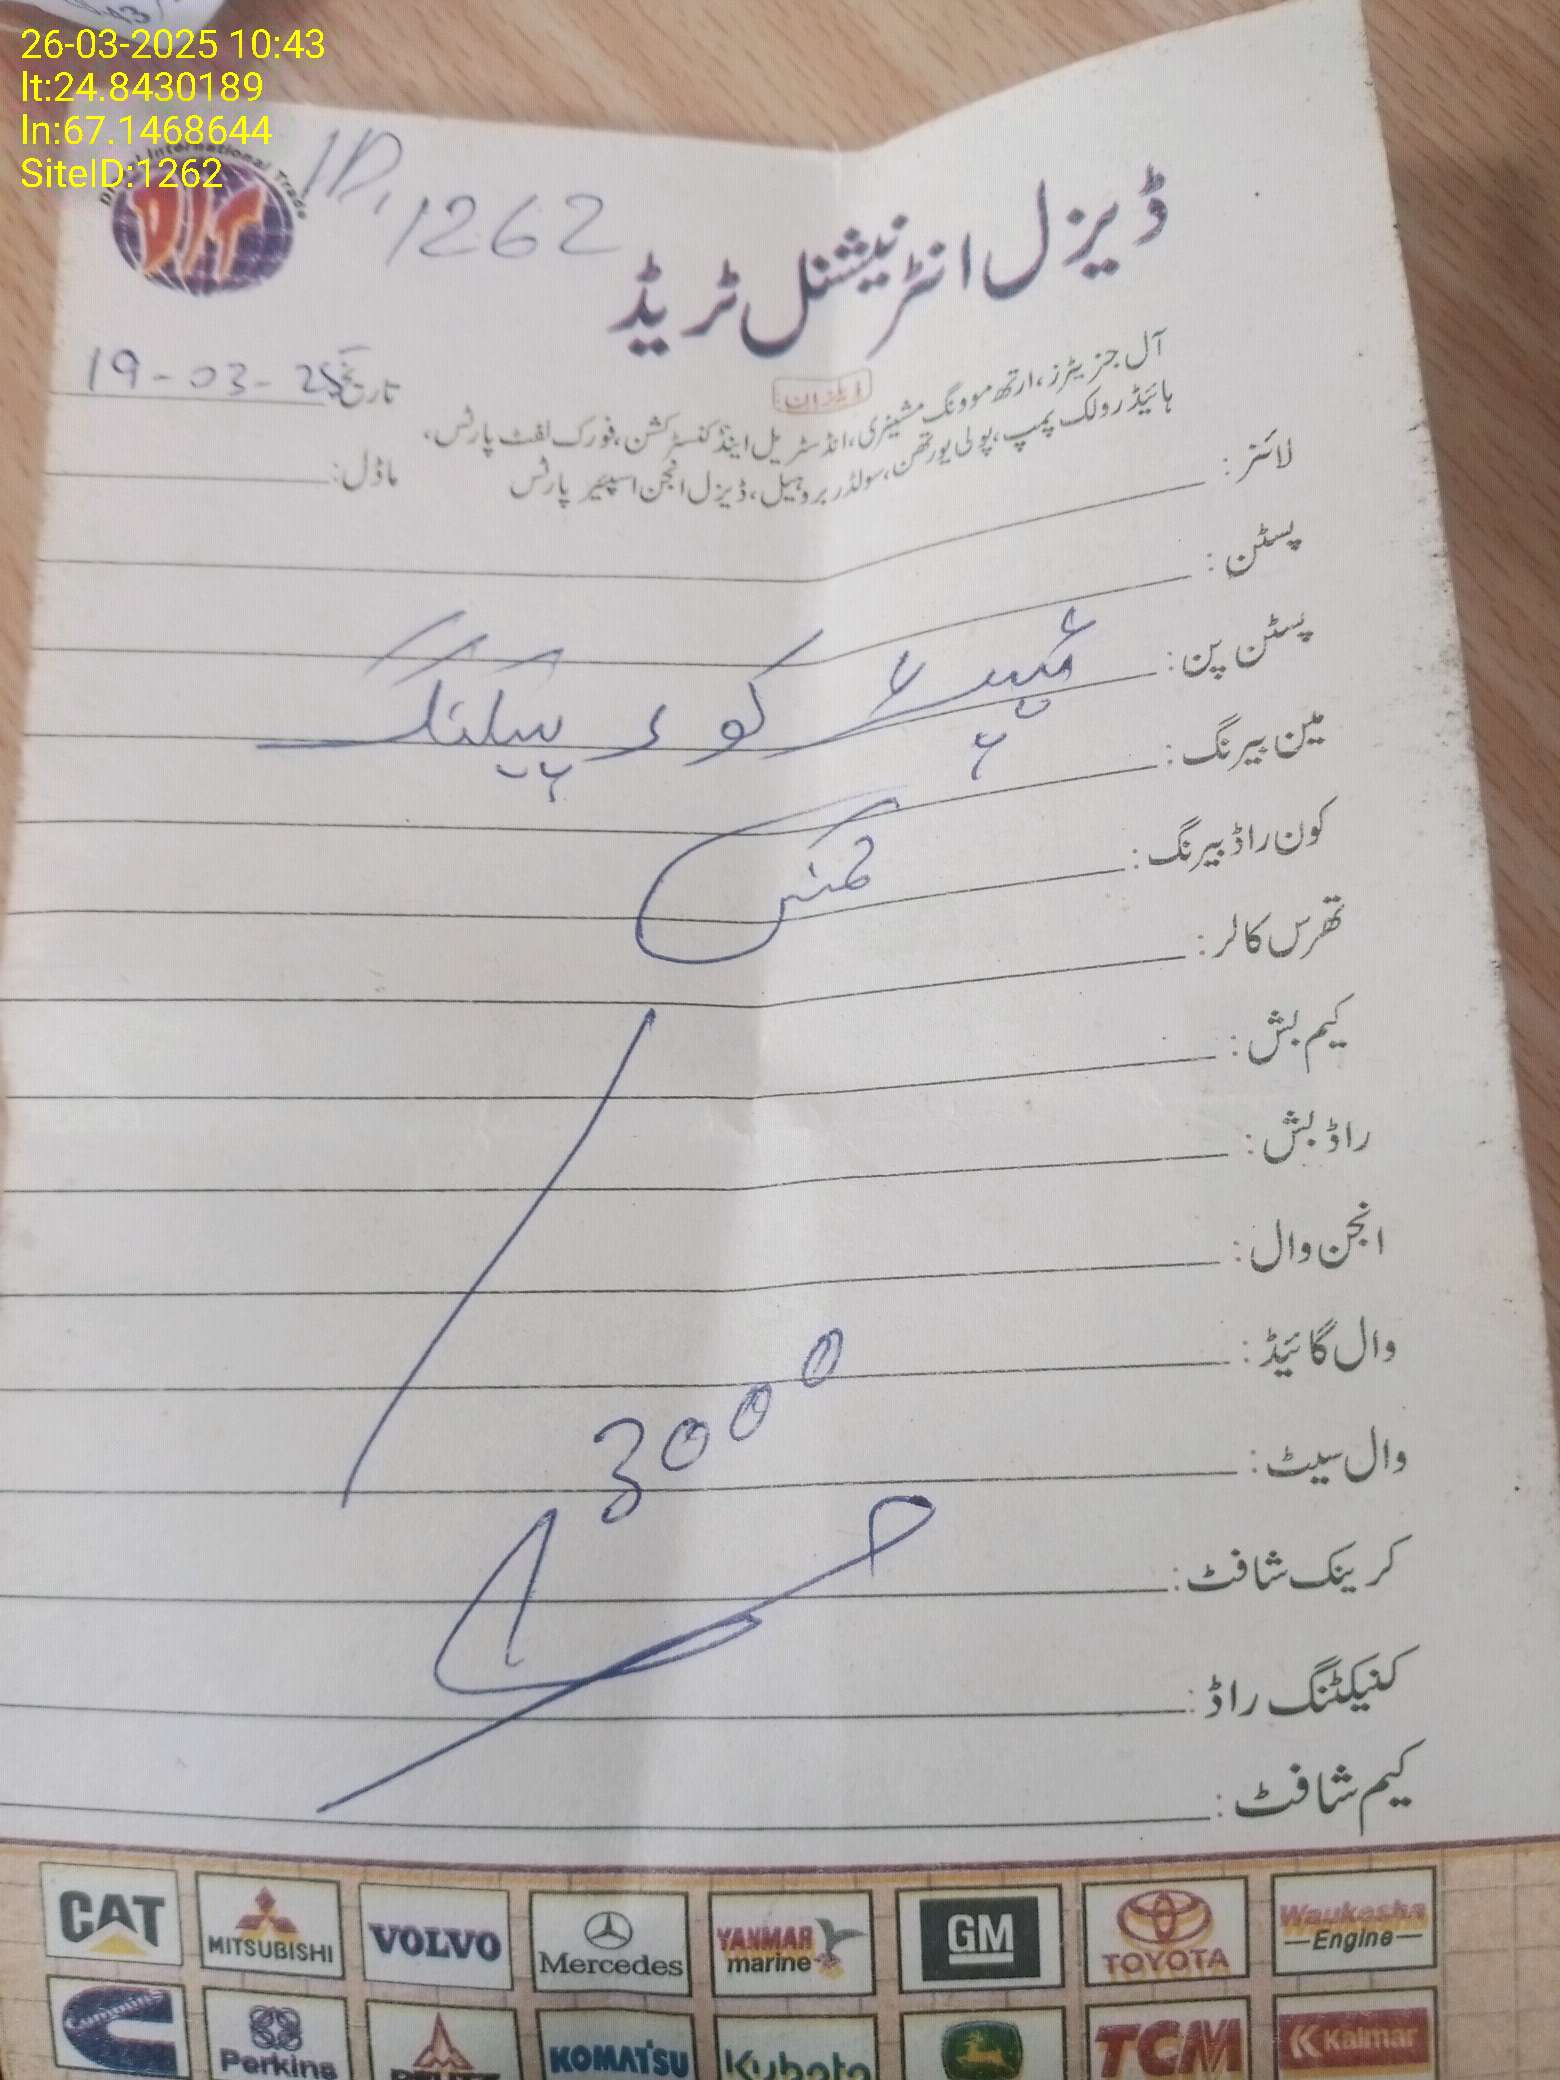 26-03-2025 10:43
lt:24.8430189
ln:67.1468644
SiteID:1262
International Trade
DIT
ID, 1262
ڈیزل انٹرنیشنل ٹریڈ
تاریخ 19-03-25
ڈیلران
آل جنریٹرز، ارتھ موونگ مشینری، انڈسٹریل اینڈ کنسٹرکشن، فورک لفٹ پارٹس،
ہائیڈرولک پمپ، پولی یورتھن، سولڈر بروہیل، ڈیزل انجن اسپئیر پارٹس
ماڈل:
لائنر:
پسٹن:
پسٹن پن:
کور پیکنگ
مین بیرنگ:
کون راڈ بیرنگ:
تھرس کالر:
کیم بش:
راڈ بش:
انجن وال:
وال گائیڈ:
3000
وال سیٹ:
کرینک شافٹ:
کنیکٹنگ راڈ:
کیم شافٹ:
CAT MITSUBISHI VOLVO Mercedes YANMAR marine GM TOYOTA Waukesha Engine
Cummins Perkins DEUTZ KOMATSU Kubota TCM Kalmar